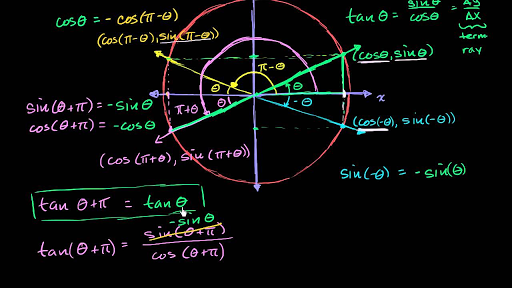 cosθ = - cos(π-θ)
(cos(π-θ), sin(π-θ))
tanθ = sinθ/cosθ = Δy/Δx
term
ray
(cosθ, sinθ)
π-θ
θ
θ
-θ
x
π+θ
θ
sin(θ+π) = -sinθ
cos(θ+π) = -cosθ
(cos(-θ), sin(-θ))
(cos(π+θ), sin(π+θ))
sin(-θ) = -sin(θ)
tan θ+π = tanθ
-sinθ
tan(θ+π) = sin(θ+π)/cos(θ+π)